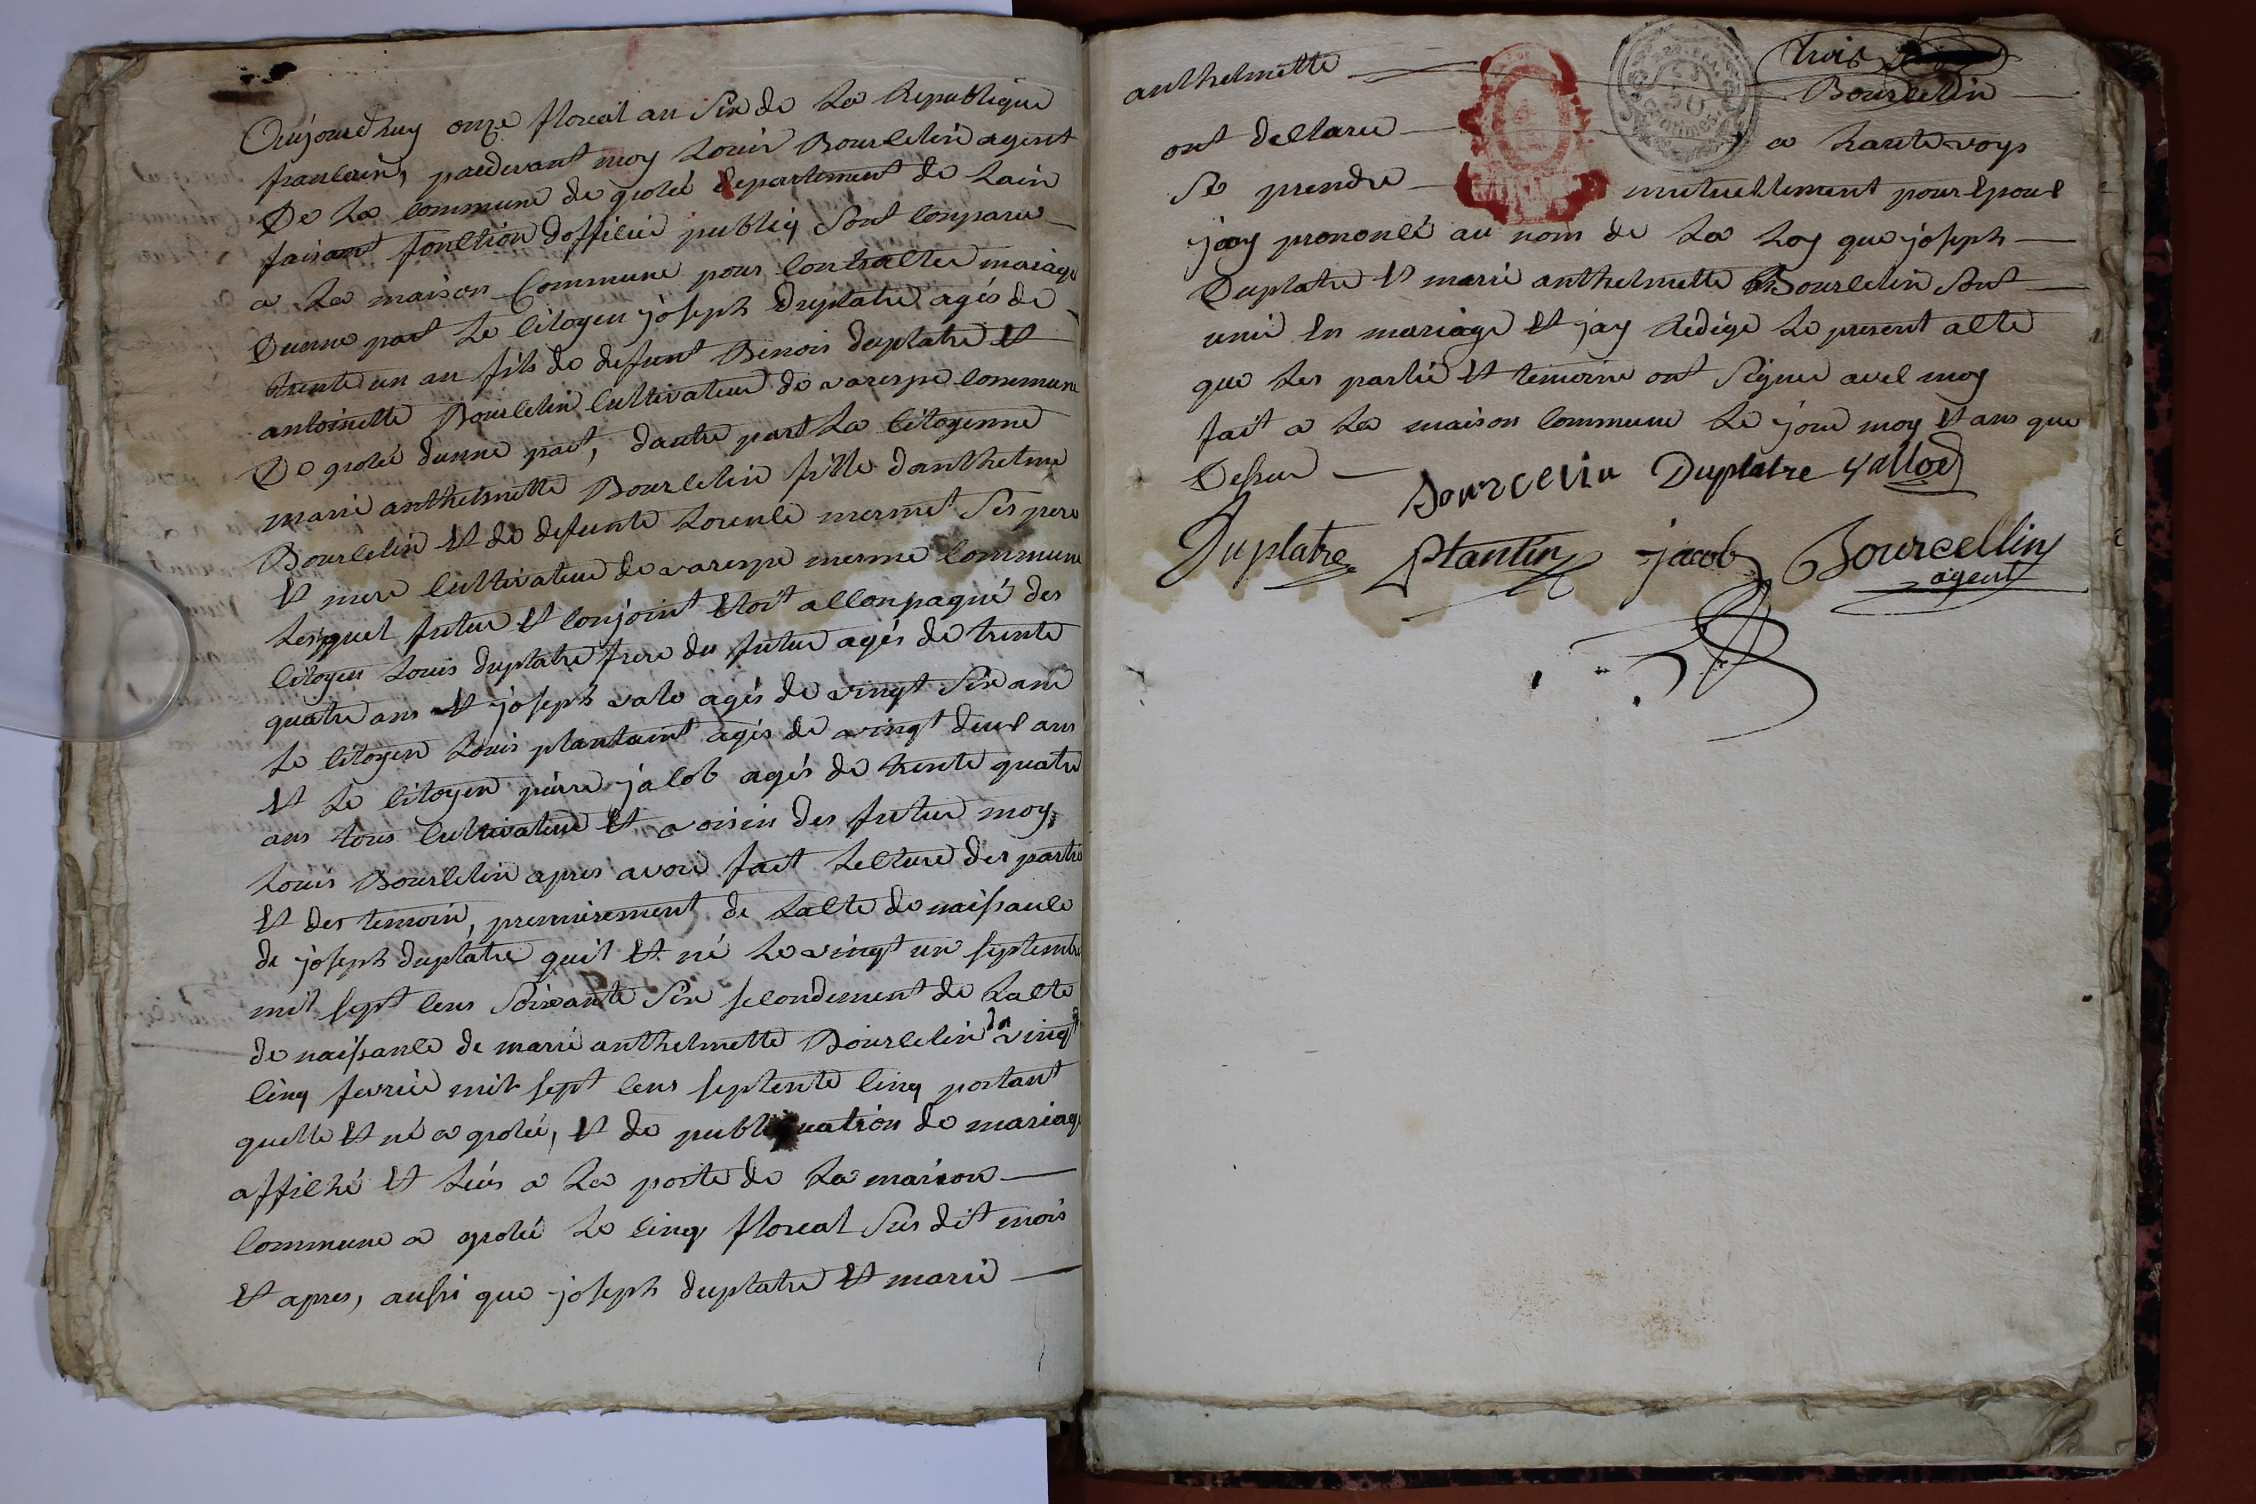 Aujourdhuy onze floreal an Six de La Republique
francaise, pardevant moy Louis Bourcelin agent
De La commune de groleé departement de Lain
faisant fonction dofficié public Sont conparu
a La maison Commune pour contracter mariage
Dunne part Le citoyen joseph duplatre agés de
trente un an fils de defunt Benois duplatre et
antoinette Bourcelin cultivateur de varespe commune
De groleé dunne part, dautre part La citoyenne
marie anthelmette Bourcelin fille danthelme
Bourcelin et de defunte Lorence mermet Ses pere
et mere cultivateur de varespe mesme commune
Lesquel futur et conjoint etoit acconpagné des
citoyen Louis duplatre frere du futur agés de trente
quatre ans et joseph valo agés de vingt Six ans
Le citoyen Louis plantaint agés de vingt deux ans
et Le citoyen pierre jacob agés de trente quatre
ans tous cultivateur et avoisin des futur moy,
Louis Bourcelin apres avoir fait Lecture des partie
et des temoin, premierement de Lacte de naissance
de joseph duplatre quil et né Le vingt un septembre
mil sept cens Soixante Six secondement de Lacte
de naissance de marie anthelmette Bourcelin du vingt
cinq fevrier mil sept cens septente cinq portant
quelle et né a groleé, et de publiquation de mariage
affiché et Lüs a La porte de La maison
commune a groleé Le cinq floreal Sus dit mois
et apres, aussi que joseph duplatre et marie
trois
anthelmette Bourcelin
ont declaré a haute voys
50 centimes
Se prendre mutuellement pour Epoux
jay prononcé au nom de La Loy que joseph
Duplatre et marie anthelmette Bourcelin Sont
unie en mariage et jay Redigé Le present acte
que Les partie et temoins ont Signer avec moy
fait a La maison commune Le jour moy et ans que
Dessus Bourcelin Duplatre Vallod
Duplatre Plantin jacob Bourcellin
agent